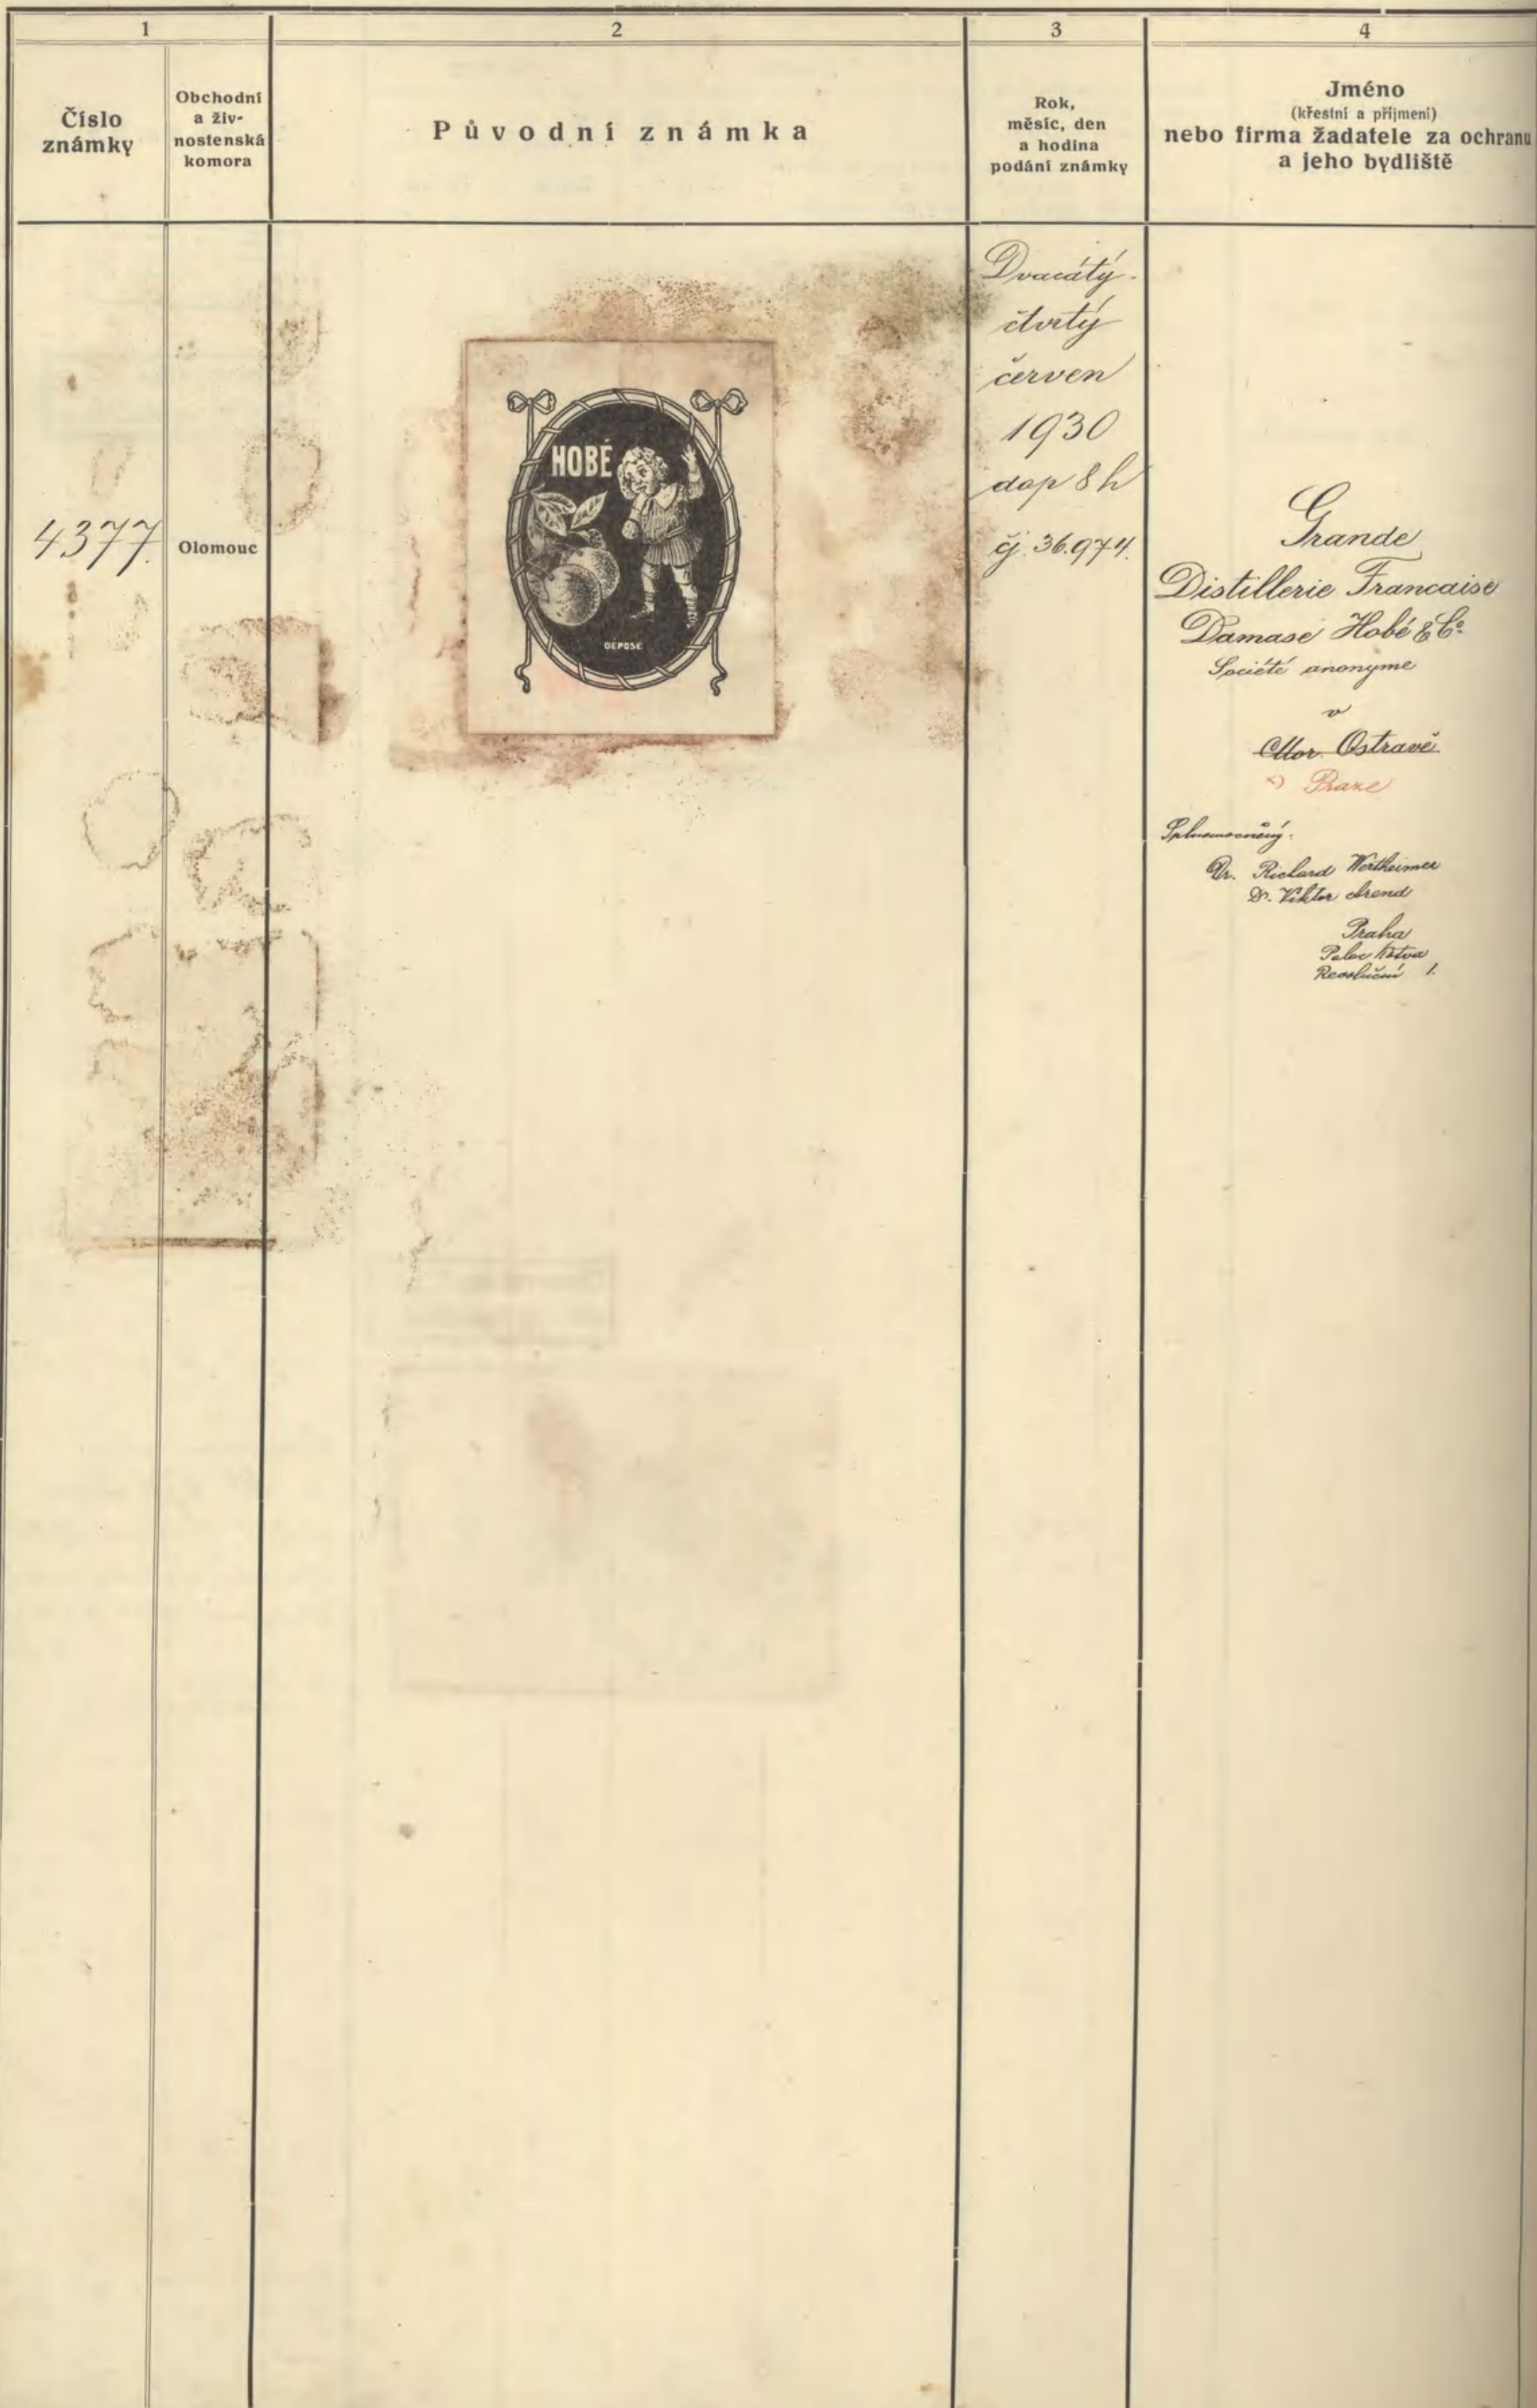 1
2
3
4
Číslo
známky
Obchodní
a živ-
nostenská
komora
Původní známka
Rok,
měsíc, den
a hodina
podání známky
Jméno
(křestní a příjmení)
nebo firma žadatele za ochranu
a jeho bydliště
4377.
Olomouc
HOBÉ
DEPOSE
Dvacátý-
čtvrtý
červen
1930
dop 8 h
čj. 36.974.
Grande
Distillerie Francaise
Damase Hobé & Co.
Société anonyme
v
Mor. Ostravě
x) Praze
Splnomocněný:
Dr. Richard Wertheimer
Dr. Viktor Arend
Praha
Palac Kotva
Revoluční 1.